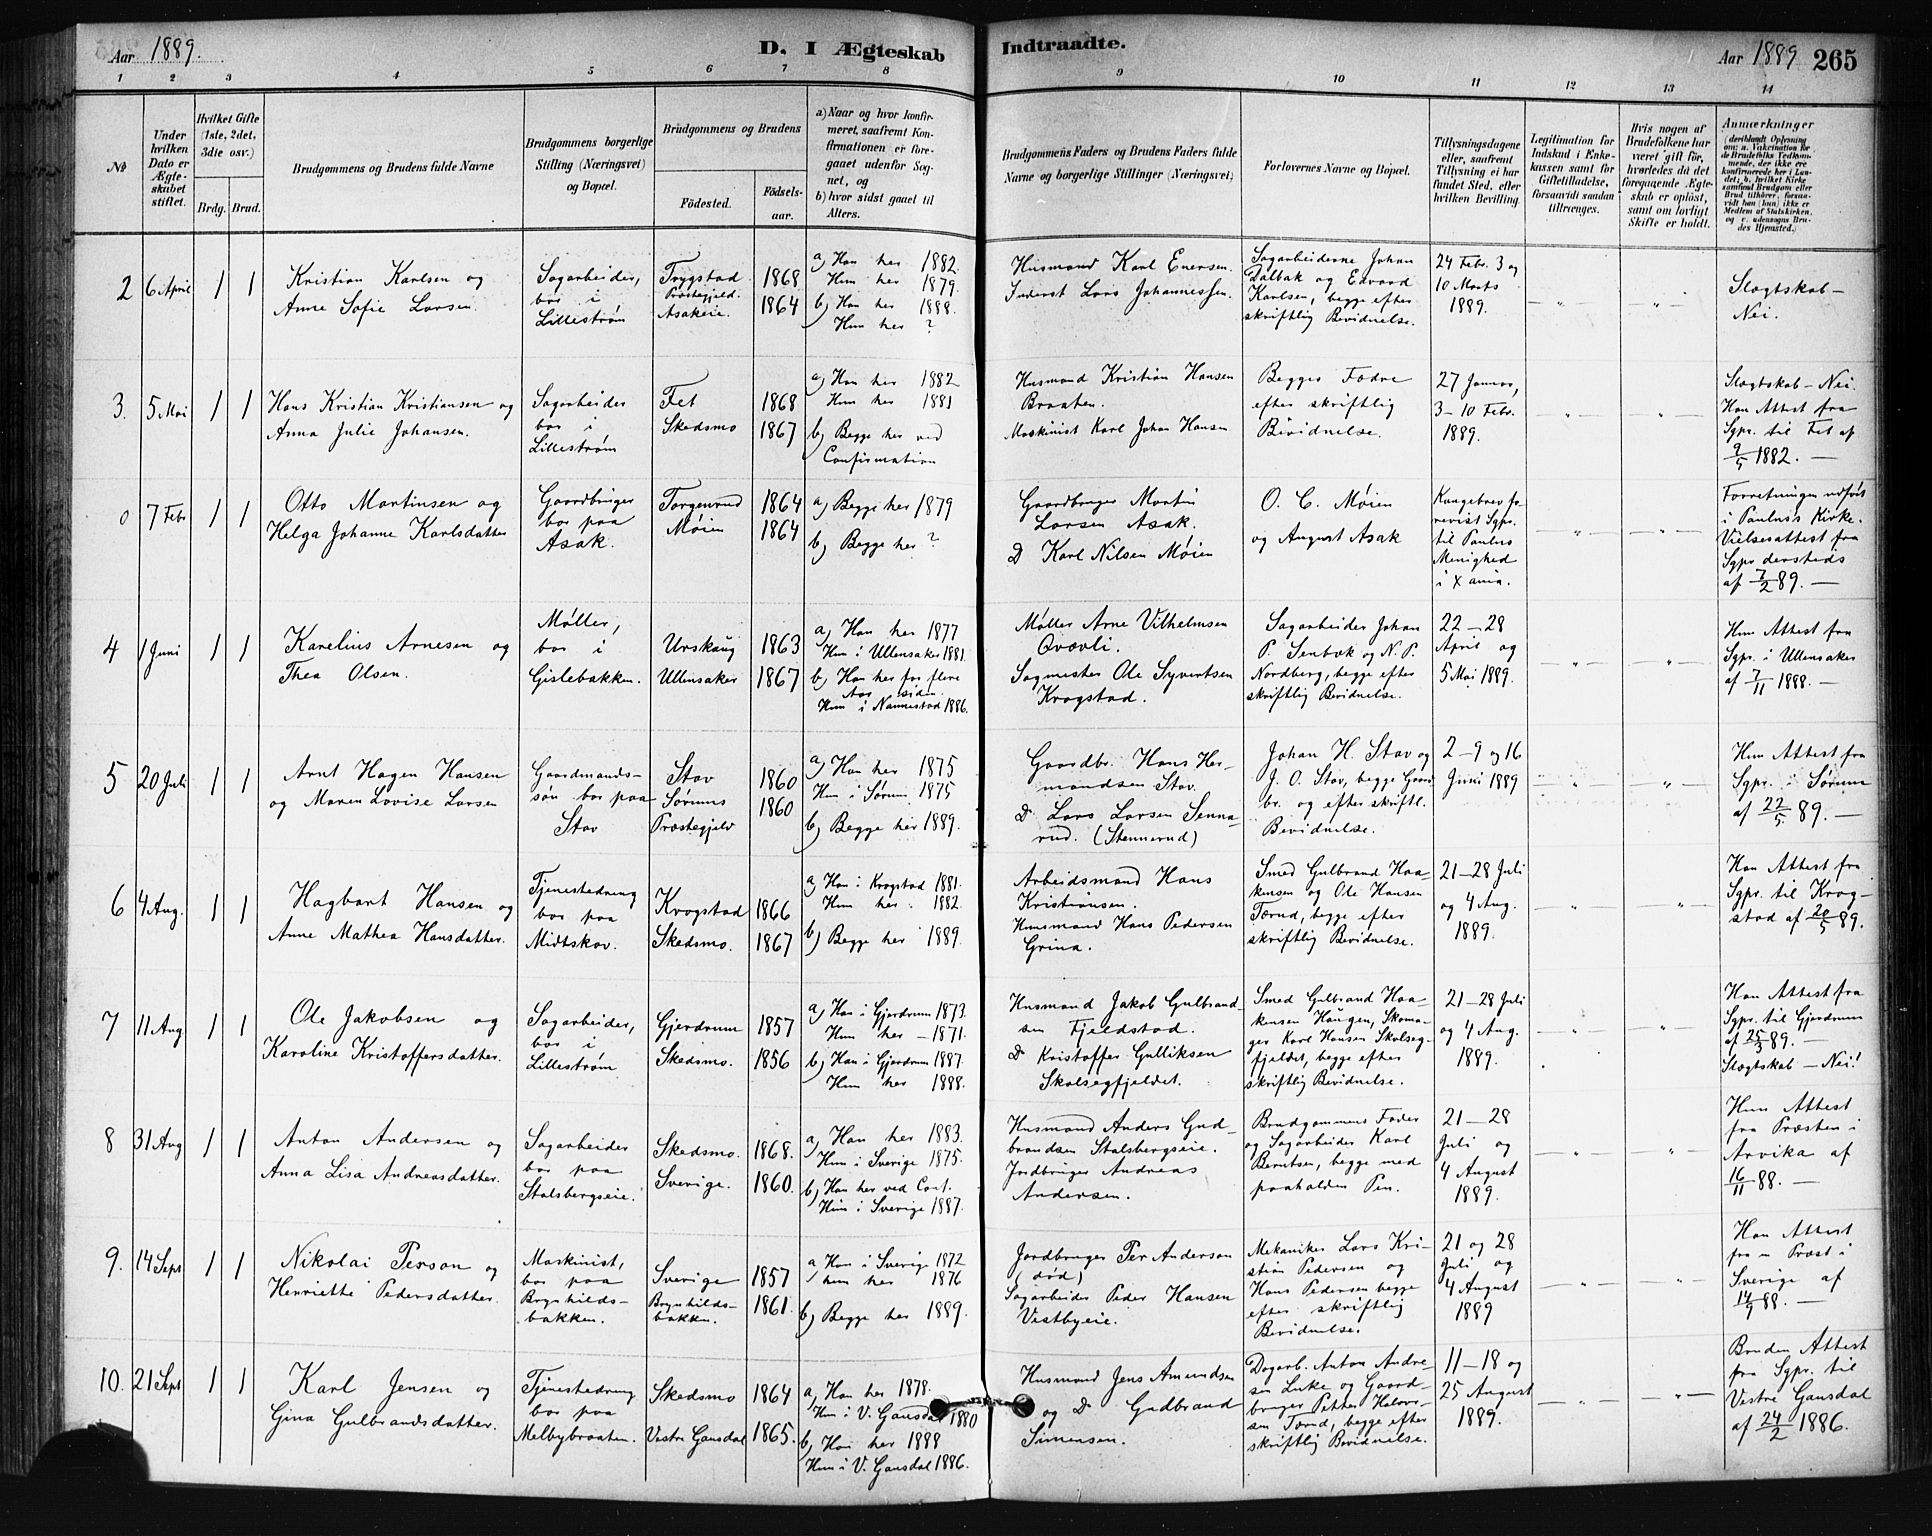 Aar 1889.
D. I Ægteskab
Indtraadte.
Aar 1889
265
1 2 3 4 5 6 7 8 9 10 11 12 13 14
No
Under hvilken Dato er Ægteskabet stiftet.
Hvilket Gifte (1ste, 2det, 3die osv.)
Brdg. Brud.
Brudgommens og Brudens fulde Navne
Brudgommens borgerlige Stilling (Næringsvei) og Bopæl.
Brudgommens og Brudens
Fødested.
Fødselsaar.
a) Naar og hvor konfirmeret, saafremt Konfirmationen er foregaaet udenfor Sognet, og
b) hvor sidst gaaet til Alters.
Brudgommens Faders og Brudens Faders fulde Navne og borgerlige Stillinger (Næringsvei)
Forlovernes Navne og Bopæl.
Tillysningsdagene eller, saafremt Tillysning ei har fundet Sted, efter hvilken Bevilling.
Legitimation for Indskud i Enkekassen samt for Giftetilladelse, forsaavidt saadan tiltrænges.
Hvis nogen af Brudefolkene har været gift før, hvorledes da det foregaaende Ægteskab er opløst, samt om lovligt Skifte er holdt.
Anmærkninger
2
6 April
1 1
Kristian Karlsen og
Anne Sofie Larsen.
Sagarbeider,
bor i
Lillestrøm
Trygstad
Præstegjeld.
Asakeie.
1868
1864
a) Han her 1882.
Hun her 1879.
b) Han her 1888.
Hun her ?
Husmand Karl Enersen.
Inderst Lars Johannessen.
Sagarbeiderne Johan
Dalbak og Edvard
Karlsen, begge efter
skriftlig Bevidnelse.
24 Febr. 3 og
10 Marts
1889.
Slægtskab –
Nei.
3.
5 Mai
1 1
Hans Kristian Kristiansen og
Anna Julie Johansen.
Sagarbeider
bor i
Lillestrøm
Fet
Skedsmo
1868
1867
a) Han her 1882
Hun her 1881
b) Begge her ved
Confirmation
Husmand Kristian Hansen
Braaten.
Maskinist Karl Johan Hansen
Begges Fædre
efter skriftlig
Bevidnelse.
27 Januar,
3–10 Febr.
1889.
Slægtskab – Nei.
Han Attest fra
Sgpr. til Fet af
9/5 1882. –
0
7 Febr
1 1
Otto Martinsen og
Helga Johanne Karlsdatter
Gaardbruger
bor paa
Asak.
Torgenrud
Møien
1864
1864
a) Begge her 1879
b) Begge her ?
Gaardbruger Martin
Larsen Asak.
D Karl Nilsen Møien
O. C. Møien
og August Asak
Kongebrev fo-
revist Sgpr.
til Paulus
Menighed
i Xania.
Forretningen udført
i Paulus Kirke.
Vielsesattest fra
Sgpr dersteds
af 7/2 89. –
4
1 Juni
1 1
Karelius Arnesen og
Thea Olsen.
Møller,
bor i
Gislebakken.
Urskaug
Ullensaker
1863
1867
a) Han her 1877
Hun i Ullensaker 1881.
b) Han her for flere
Aar siden.
Hun i Nannestad 1886.
Møller Arne Vilhelmsen
Qvævli.
Sagmester Ole Syvertsen
Krogstad.
Sagarbeider Johan
P. Senbæk og N. P.
Nordberg, begge efter
skriftlig Bevidnelse.
22–28
April og
5 Mai 1889.
Hun Attest fra
Sgpr. i Ullensaker
af 7/11 1888. –
5
20 Juli
1 1
Arnt Hagen Hansen
og Maren Lovise Larsen
Gaardmands-
søn bor paa
Stav
Stav
Sørums
Præstegjeld
1860
1860
a) Han her 1875
Hun i Sørum 1875
b) Begge her 1889.
Gaardbr. Hans Her-
mandsen Stav.
D Lars Larsen Senna-
rud. (Stennerud)
Johan H. Stav og
J. O. Stav, begge Gaard
br. og efter skriftl.
Bevidnelse.
2–9 og 16
Juni 1889
Hun Attest fra
Sgpr. i Sørum
af 22/5 89. –
6
4 Aug.
1 1
Hagbart Hansen og
Anne Mathea Hansdatter.
Tjenestedreng
bor paa
Midtskov.
Krogstad
Skedsmo.
1866
1867
a) Han i Krogstad 1881.
Hun her 1882.
b) Begge her 1889.
Arbeidsmand Hans
Kristiansen.
Husmand Hans Pedersen
Grina.
Smed Gulbrand Haa-
kensen og Ole Hansen
Tærud, begge efter
skriftlig Bevidnelse.
21–28 Juli
og 4 Aug.
1889.
Han Attest fra
Sgpr. til Krog-
stad af 20/5 89.
7
11 Aug
1 1
Ole Jakobsen og
Karoline Kristoffersdatter.
Sagarbeider,
bor i
Lillestrøm
Gjerdrum
Skedsmo.
1857
1856
a) Han i Gjerdrum 1873.
Hun her – 1871.
b) Han i Gjerdrum 1887.
Hun her 1888.
Husmand Jakob Gulbrand
sen Fjeldstad.
D Kristoffer Gulliksen
Skolsegfjeldet.
Smed Gulbrand Haa-
kensen Haugen, Skoma-
ger Karl Hansen Skolseg-
fjeldet, begge efter
skriftlig Bevidnelse.
21–28 Juli
og 4 Aug.
1889.
Han Attest fra
Sgpr. til Gjerdrum
af 25/3 89. –
Slægtskab – Nei!
8
31 Aug
1 1
Anton Andersen og
Anna Lisa Andreasdatter.
Sagarbeider
bor paa
Stalsbergseie.
Skedsmo.
Sverige.
1868.
1860.
a) Han her 1883.
Hun i Sverige 1875.
b) Han her ved Conf.
Hun i Sverige 1887.
Husmand Anders Gud-
brandsen Stalsbergseie.
Jordbruger Andreas
Andersen.
Brudgommens Fader
og Sagarbeider Karl
Berntsen, begge med
paaholden Pen.
21–28
Juli og
4 August
1889.
Hun Attest
fra Præsten i
Arvika af
16/11 88. –
9.
14 Sept
1 1
Nikolai Person og
Henriette Pedersdatter.
Maskinist,
bor paa
Brynhilds-
bakken.
Sverige
Brynhilds-
bakken.
1857
1861.
a Han i Sverige 1872
hun her 1876
b) Begge her 1889.
Jordbruger Per Anderson
(død)
Sagarbeider Peder Hansen
Vestbyeie.
Mekaniker Lars Kri-
stian Pedersen og
Hans Pedersen begge
efter skriftlig
Bevidnelse.
21 og 28
Juli og
4 August
1889
Han Attest
fra n Præst i
Sverige af
14/9 88. –
10.
21 Sept
1 1
Karl Jensen og
Gina Gulbrandsdatter.
Tjenestedreng
bor paa
Melbybraaten.
Skedsmo
Vestre Gausdal
1864
1865.
a) Han her 1878.
Hun i V. Gausdal 1880
b) Han her 1888
Hun i V. Gausdal 1886.
Husmand Jens Amundsen
og D Gudbrand
Simensen.
Dagarb. Anton Andre-
sen Luke og Gaard-
bruger Petter Halvor-
sen Tærud, begge efter
skriftlig Bevidnelse.
11–18 og
25 August
1889.
Bruden Attest
fra Sgpr. til
Vestre Gausdal
af 24/2 1886.